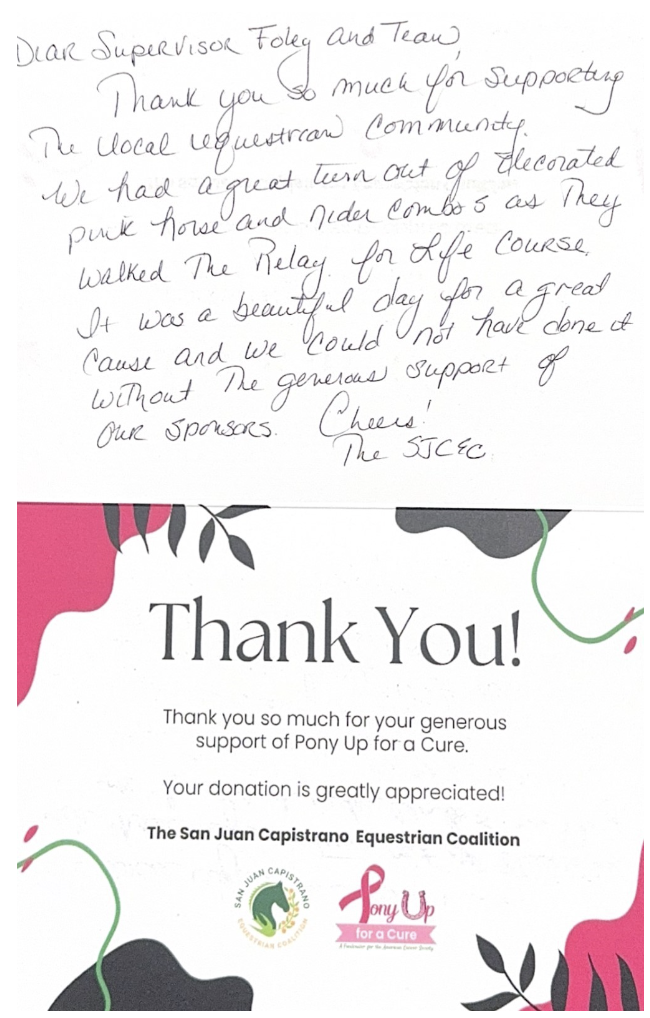 Dear Supervisor Foley and Team,
Thank you so much for supporting
The local equestrian community.
We had a great turn out of decorated
pink horse and rider combos as They
walked The Relay for Life course.
It was a beautiful day for a great
cause and we could not have done it
without The generous support of
our sponsors. Cheers!
The SJCEC
Thank You!
Thank you so much for your generous
support of Pony Up for a Cure.
Your donation is greatly appreciated!
The San Juan Capistrano Equestrian Coalition
SAN JUAN CAPISTRANO
EQUESTRIAN COALITION
Pony Up
for a Cure
A Fundraiser for the American Cancer Society